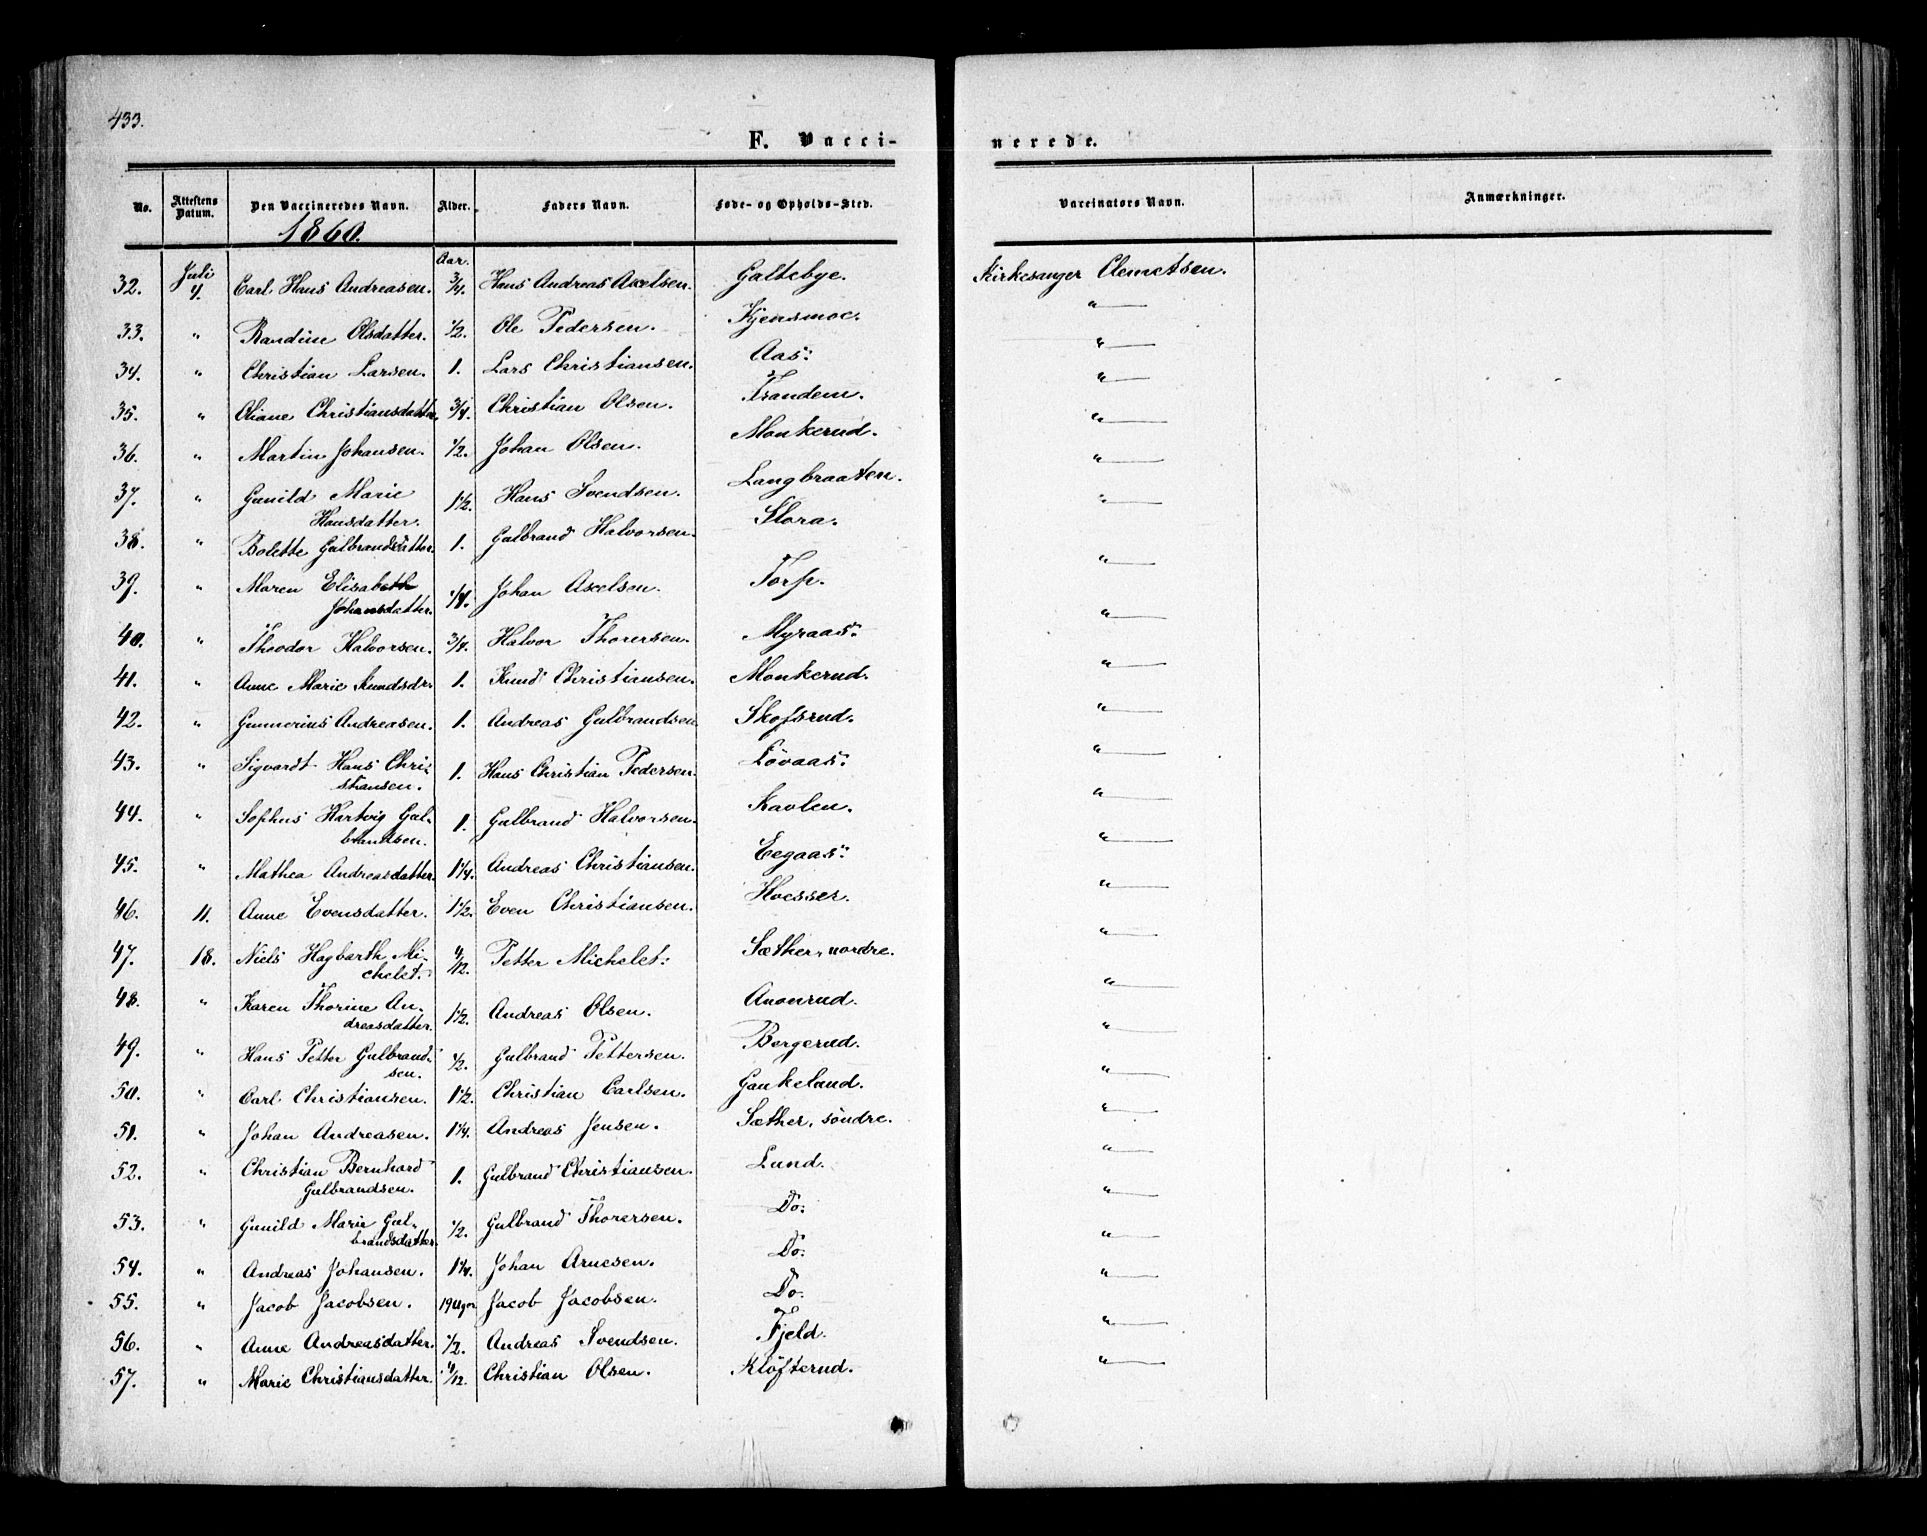 433.
F. Vacci-
nerede.
No.
Attestens Datum.
Den Vaccineredes Navn.
Alder.
Faders Navn.
Føde- og Opholds-Sted.
Vaccinators Navn.
Anmærkninger.
1860.
Aar.
32. Juli 4. Carl Hans Andreasen. 3/4. Hans Andreas Axelsen. Galtebye. Kirkesanger Clemetsen.
33. " Randine Olsdatter. 1/2. Ole Pedersen. Kjensmoe. "
34. " Christian Larsen. 1. Lars Christiansen. Aas: "
35. " Oliane Christiansdatter. 3/4. Christian Olsen. Trandem. "
36. " Martin Johansen. 1/2. Johan Olsen. Monkerud. "
37. " Gunild Marie 1 1/2. Hans Svendsen. Langbraaten. "
Hansdatter.
38. " Bolette Gulbrandsdatter. 1. Gulbrand Halvorsen. Slora. "
39. " Maren Elisabeth 1/4. Johan Axelsen. Torp. "
Johansdatter.
40. " Theodor Halvorsen. 3/4. Halvor Thorersen. Myraas: "
41. " Anne Marie Knudsdr. 1. Knud Christiansen. Monkerud. "
42. " Gunnerius Andreasen. 1. Andreas Gulbrandsen. Skofsrud. "
43. " Sigvardt Hans Chri- 1. Hans Christian Pedersen. Lövaas: "
stiansen.
44. " Sophus Hartvig Gul- 1. Gulbrand Halvorsen. Kavlen. "
brandsen.
45. " Mathea Andreasdatter. 1 1/4. Andreas Christiansen. Eegaas: "
46. 11. Anne Evensdatter. 1 1/2. Even Christiansen. Hoesser. "
47. 18. Niels Hagbarth Mi- 4/12. Petter Michelet: Sæther, nordre. "
chelet.
48. " Karen Thorine An- 1 1/2. Andreas Olsen. Anonrud. "
dreasdatter.
49. " Hans Petter Gulbrand- 1/2. Gulbrand Pettersen. Bergerud. "
sen.
50. " Carl Christiansen. 1 1/2. Christian Carlsen. Gaukeland. "
51. " Johan Andreasen. 1 1/4. Andreas Jensen. Sæther, söndre. "
52. " Christian Bernhard 1. Gulbrand Christiansen. Lund. "
Gulbrandsen.
53. " Gunild Marie Gul- 1/2. Gulbrand Thorersen. Do: "
brandsdatter.
54. " Andreas Johansen. 1 1/4. Johan Arnesen. Do: "
55. " Jacob Jacobsen. 19 Uger Jacob Jacobsen. Do. "
56. " Anne Andreasdatter. 1/2. Andreas Svendsen. Fjeld. "
57. " Marie Christiansdatter. 4/12. Christian Olsen. Klöfterud. "